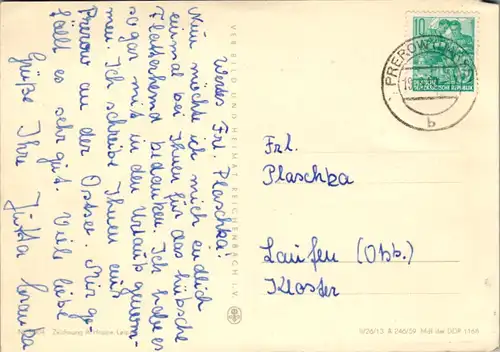 Wertes Frl. Plaschka!
Nun möchte ich mich endlich
einmal bei Ihnen für das hübsche
Flatterhemd bedanken. Ich habe es
sogar mit in den Urlaub genom-
men. Ich schreibe Ihnen aus
Prerow an der Ostsee. Mir ge-
fällt es sehr gut. Viele liebe
Grüße Ihre Jutta
VEB BILD UND HEIMAT REICHENBACH I. V.
Zeichnung
10
DEUTSCHE
DEMOKRATISCHE REPUBLIK
PREROW
b
Frl.
Plaschka
Laufen (Obb.)
Kloster
V/26/13 A 246/59 Mdl der DDR 1166